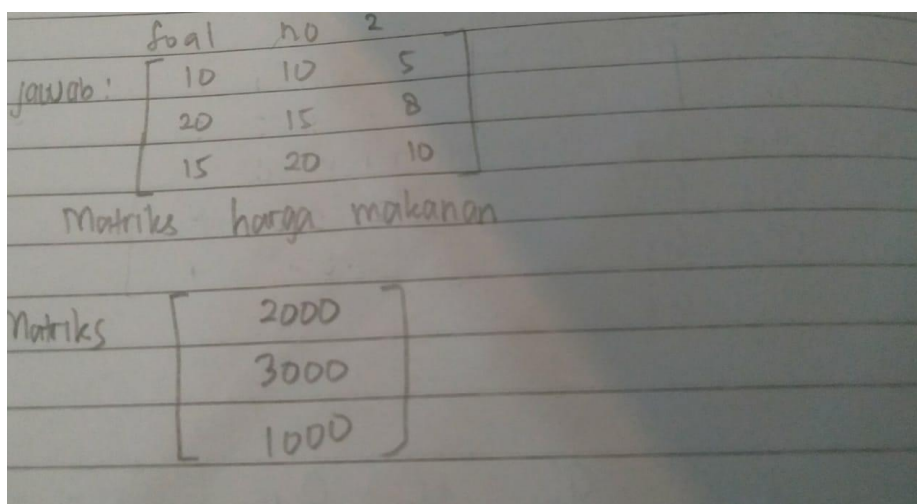 soal no 2
jawab: 10 10 5
20 15 8
15 20 10
Matriks harga makanan
Matriks 2000
3000
1000